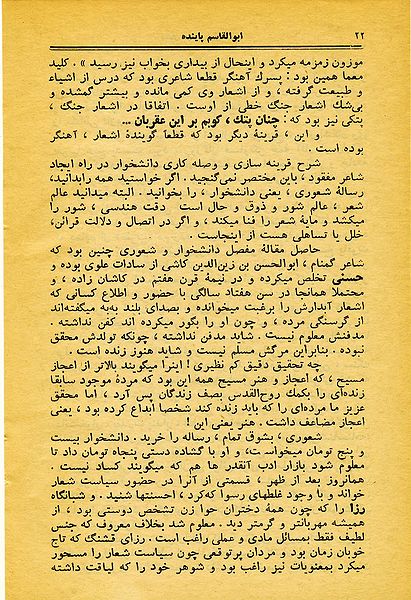 ۲۲ ابوالقاسم پاینده
موزون زمزمه میکرد و اینحال از بیداری بخواب نیز رسید» . کلید
معما همین بود : پسرك آهنگر قطعا شاعری بود که درس از اشیاء
و طبیعت گرفته ، و از اشعار وی کمی مانده و بیشتر گمشده و
بی‌شك اشعار جنگ خطی از اوست . اتفاقا در اشعار جنگ ،
پتکی نیز بود که : چنان پتك ، کوبم بر این عقربان ...
و این ، قرینهٔ دیگر بود که قطعاً گویندهٔ اشعار ، آهنگر
بوده است .
شرح قرینه سازی و وصله کاری دانشخوار در راه ایجاد
شاعر مفقود ، باین مختصر نمی‌گنجید . اگر خواستید همه رابدانید،
رسالهٔ شعوری ، یعنی دانشخوار ، را بخوانید . البته میدانید عالم
شعر ، عالم شور و ذوق و حال است دقت هندسی ، شور را
میکشد و مایهٔ شعر را فنا میکند ، و اگر در اتصال و دلالت قرائن،
خلل یا تساهلی هست از اینجاست .
حاصل مقالهٔ مفصل دانشخوار و شعوری چنین بود که
شاعر گمنام ، ابوالحسن بن زین‌الدین کاشی از سادات علوی بوده و
حسنی تخلص میکرده و در نیمهٔ قرن هفتم در کاشان زاده ، و
محتملا همانجا در سن هفتاد سالگی با حضور و اطلاع کسانی که
اشعار آبدارش را برغبت میخوانده و بصدای بلند به‌به میگفته‌اند
از گرسنگی مرده ، و چون او را بگور میکرده اند کفن نداشته .
مدفنش معلوم نیست . شاید مدفن نداشته ، چونکه تولدش محقق
نبوده . بنابراین مرگش مسلم نیست و شاید هنوز زنده است .
چه تحقیق دقیق کم نظیری ! اینرا میگویند بالاتر از اعجاز
مسیح ، که اعجاز و هنر مسیح همه این بود که مردهٔ موجود سابقا
زنده‌ای را بکمك روح‌القدس بصف زندگان پس آرد ، اما محقق
عزیز ما مرده‌ای را که باید زنده کند شخصا ابداع کرده بود ، یعنی
اعجاز مضاعف داشت . هنر یعنی این !
شعوری ، بشوق تمام ، رساله را خرید . دانشخوار بیست
و پنج تومان میخواست، و او با گشاده دستی پنجاه تومان داد تا
معلوم شود بازار ادب آنقدر ها هم که میگویند کساد نیست .
همانروز بعد از ظهر ، قسمتی از آنرا در حضور سیاست شعار
خواند و با وجود غلطهای رسوا که‌کرد ، احسنتها شنید . و شبانگاه
رزا را که چون همهٔ دختران حوا زن تشخص دوستی بود ، از
همیشه مهربانتر و گرمتر دید . معلوم شد بخلاف معروف که جنس
لطیف فقط بمسائل مادی و عملی راغب است . رزای قشنگ که تاج
خوبان زمان بود و مردان پرتوقعی چون سیاست شعار را مسحور
میکرد بمعنویات نیز راغب بود و شوهر خود را که لیاقت داشته